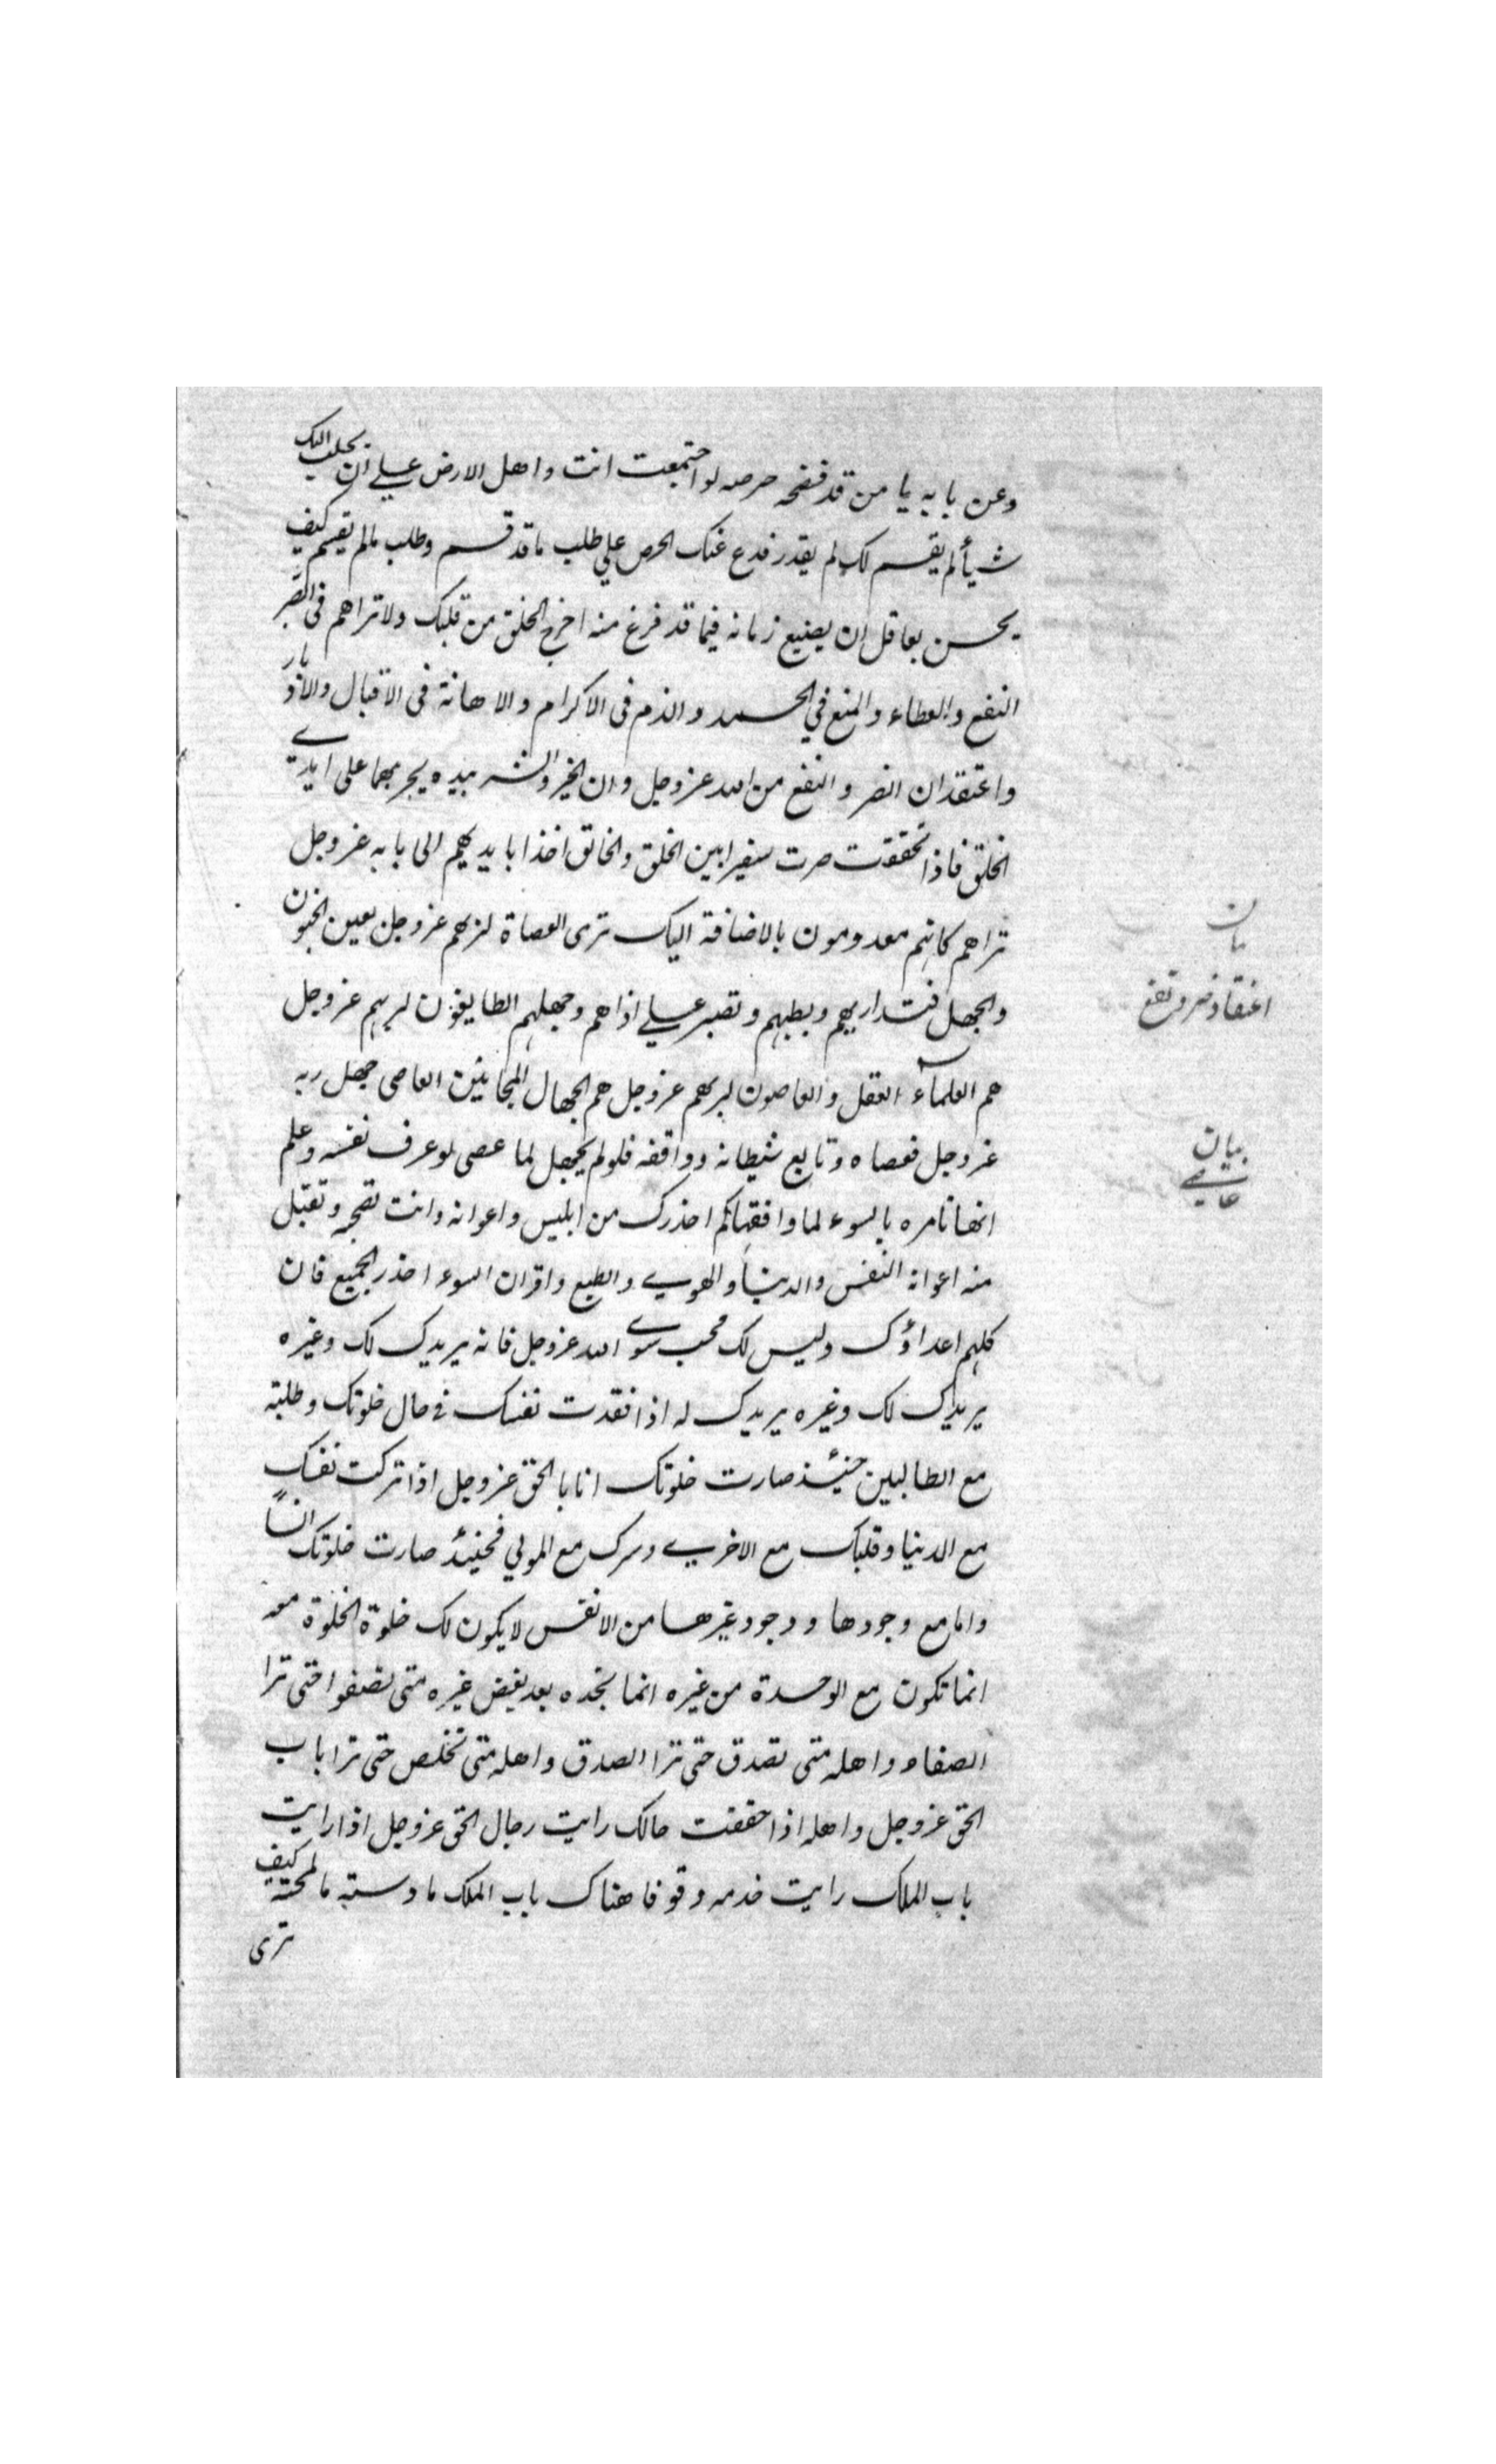 وعن بابه يا من قد فضحه حرصه لو اجتمعت انت واهل الارض على ان تجلب اليك
شيأ لم يقسم لك لم يقدر فدع عنك الحرص على طلب ما قد قسم وطلب مالم يقسم كيف
يحسن بعاقل ان يضيع زمانه فيما قد فرغ منه اخرج الخلق من قلبك ولا تراهم فى الضر
النفع والعطاء والمنع في الحمد والذم فى الاكرام والاهانة فى الاقبال والادبار
واعتقد ان الضر والنفع من الله عزوجل وان الخير والشر بيده يجر بهما على ايدي
الخلق فاذا تحققت صرت سفيرا بين الخلق والخالق اخذا بايديهم الى بابه عزوجل
تراهم كانهم معدومون بالاضافة اليك ترى العصاة لربهم عزوجل بعين الجنون
والجهل فتداريهم وبطبهم وتصبر على اذاهم وجهلهم الطايعون لربهم عزوجل
هم العلمآء العقل والعاصون لربهم عزوجل هم الجهال المجانين العاصى جهل ربه
عزوجل فعصاه وتابع شيطانه ووافقه فلولم يجهل لما عصى لو عرف نفسه وعلم
انها تامره بالسوء لما وافقها كم احذرك من ابليس واعوانه وانت تصحبه وتقبل
منه اعوانه النفس والدنيا والهوى والطبع واقران السوء احذر الجميع فان
كلهم اعداؤك وليس لك محب سوى الله عزوجل فانه يريدك لك وغيره
يريدك لك وغيره يريدك له اذا فقدت نفسك فى حال خلوتك وطلبته
مع الطالبين حينئذ صارت خلوتك انا بالحق عزوجل اذا تركت نفسك
مع الدنيا وقلبك مع الاخرى وسرك مع المولي فحينئذ صارت خلوتك انساً
واما مع وجودها ووجود غيرها من الانفس لا يكون لك خلوة الخلوة معه
انما تكون مع الوحدة من غيره انما تجده بعد بغض غيره متى تصفوا حتى ترا
الصفاء واهله متى تصدق حتى ترا الصدق واهله متى تخلص حتى ترا باب
الحق عزوجل واهله اذا حققت حالك رايت رجال الحق عزوجل اذا رايت
باب الملك رايت خدمه وقوفا هناك باب الملك مادسته مالمحته كيف
ترى
بيان
اعتقاد ضر ونفع
بيان
عاصى